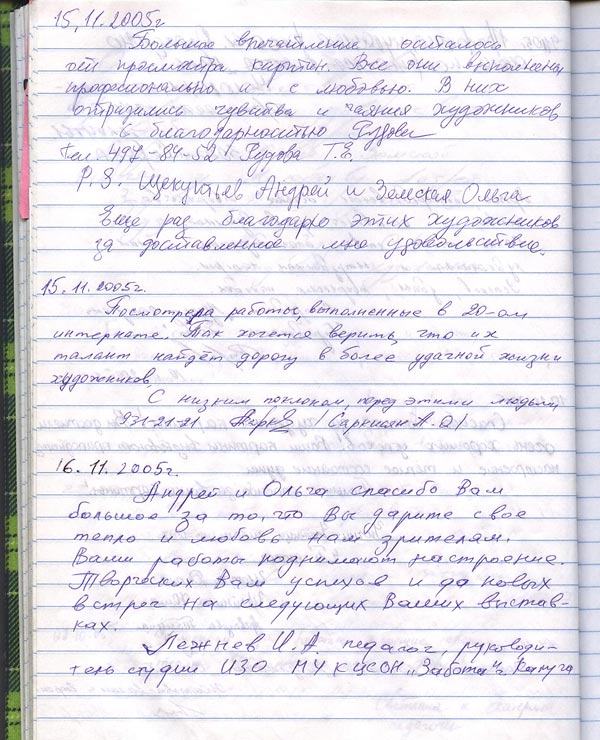 15.11.2005г
Большое впечатление осталось
от просмотра картин. Все они выполнены
професионально и с любовью. В них
отразились чувства и чаяния художников
с благодарностью
тел 497-84-52 Т.Е.
P.S. Щекутьев Андрей и Земская Ольга
Еще раз благодарю этих художников
за доставленное мне удовольствие.
15.11.2005г.
работы, выполненные в 20-ом
интернате. Так хочется верить, что их
талант найдёт дорогу в более удачной жизни
художников.
С низким поклоном перед этими людьми
931-21-21 /Саркисян А.О/
16.11.2005г.
Андрей и Ольга спасибо Вам
большое за то, что Вы дарите свое
тепло и любовь нам зрителям.
Ваши работы поднимают настроение.
Творческих Вам успехов и да новых
встреч на следующих Ваших выстав-
ках.
Лежнев И.А. педагог, руководи-
тель студии ИЗО МУ КЦСОН „Забота" г. Калуга